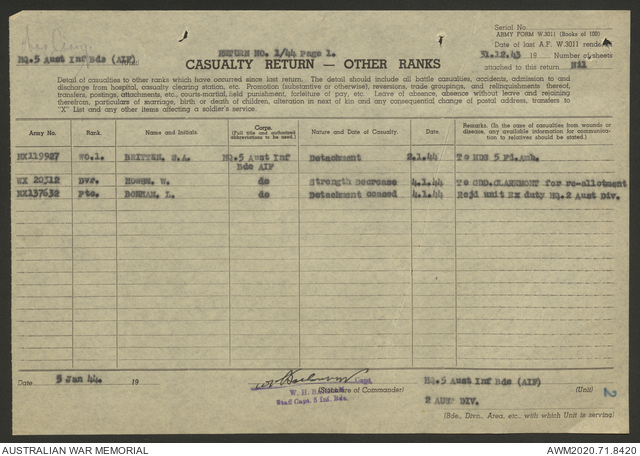 Serial No.
ARMY FORM W.3011 (Books of 100)
HQ.5 Aust Inf Bde (AIF)
RETURN NO. 1/44 Page 1.
Date of last A.F. W.3011 rendered
31.12.43 19 Number of sheets
CASUALTY RETURN — OTHER RANKS
attached to this return Nil
Detail of casualties to other ranks which have occurred since last return. The detail should include all battle casualties, accidents, admission to and
discharge from hospital, casualty clearing station, etc. Promotion (substantive or otherwise), reversions, trade groupings, and relinquishments thereof,
transfers, postings, attachments, etc., courts-martial, field punishment, forfeiture of pay, etc. Leave of absence, absence without leave and rejoining
therefrom, particulars of marriage, birth or death of children, alteration in next of kin and any consequential change of postal address, transfers to
"X" List and any other items affecting a soldier's service.
Army No. Rank. Name and Initials. Corps. (Full title and authorised abbreviations to be used.) Nature and Date of Casualty. Date. Remarks. (In the case of casualties from wounds or disease, any available information for communication to relatives should be stated.)
NX119927 Wo.1. BRITTEN, S.A. HQ.5 Aust Inf Bde AIF Detachment 2.1.44 To HDS 5 Fd.Amb.
WX 20312 Dvr. HOWES, W. do Strength Decrease 4.1.44 To GDD.CLAREMONT for re-allotment
NX137632 Pte. BONHAM, L. do Detachment ceased 4.1.44 Rejd unit Ex duty HQ.2 Aust Div.
Date 5 Jan 44. 19
Capt.
(Signature of Commander)
W. H.
Staff Capt. 5 Inf. Bde.
HQ.5 Aust Inf Bde (AIF) (Unit)
2 AUST DIV.
(Bde., Divn., Area, etc., with which Unit is serving)
2
AUSTRALIAN WAR MEMORIAL
AWM2020.71.8420